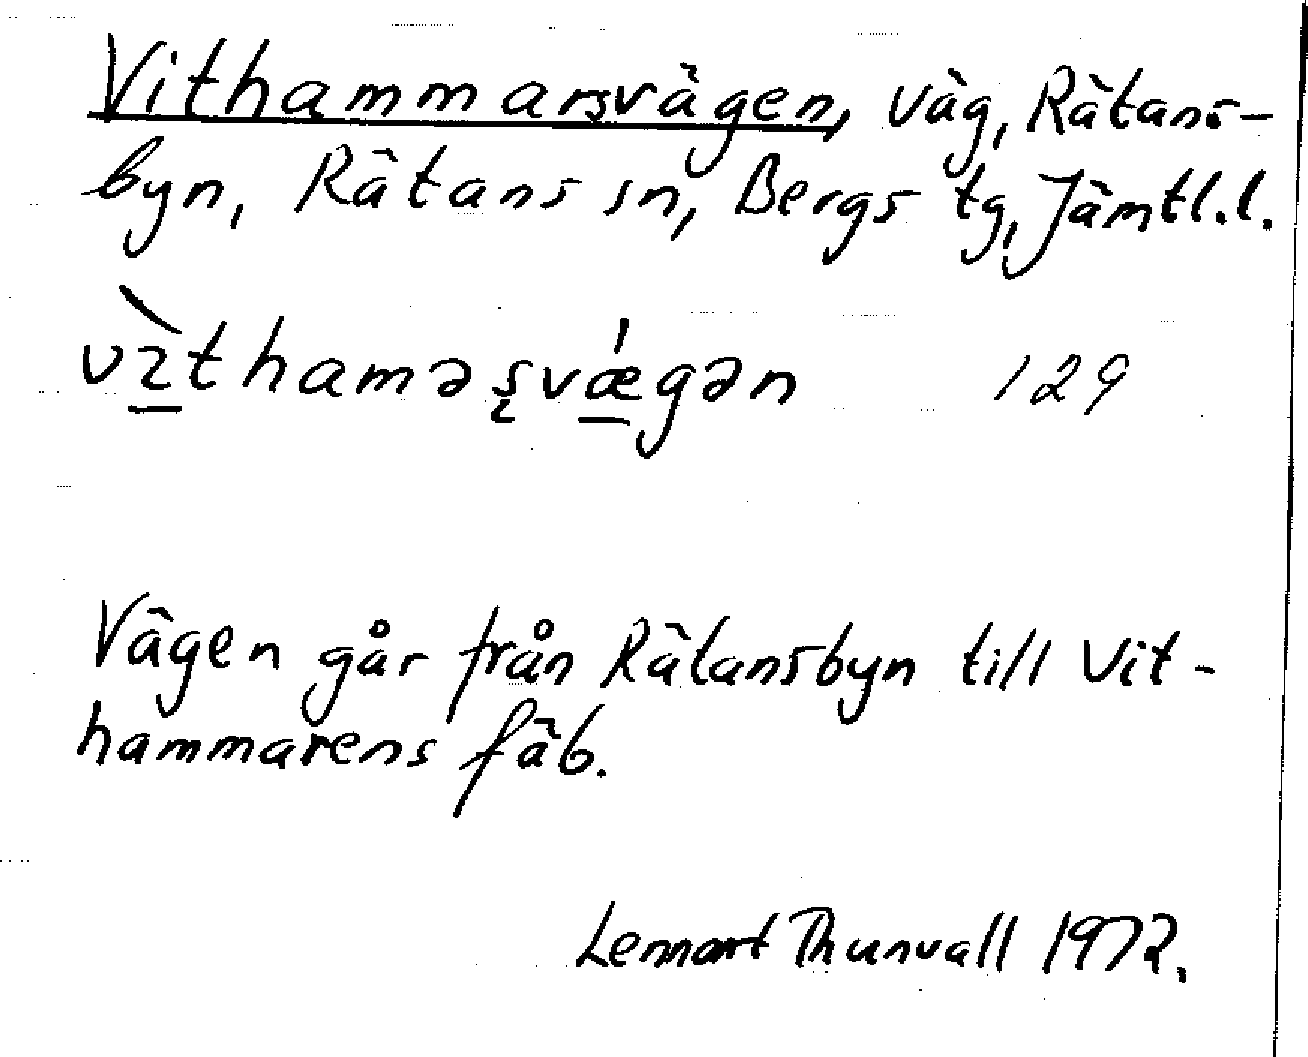 Vithammarsvägen, väg, Rätans-
byn, Rätans sn, Bergs tg, Jämtl.l.
vı̱̀thaməʂvǽ̱gən 129
Vägen går från Rätansbyn till Vit-
hammarens fäb.
Lennart Thunvall 1972.